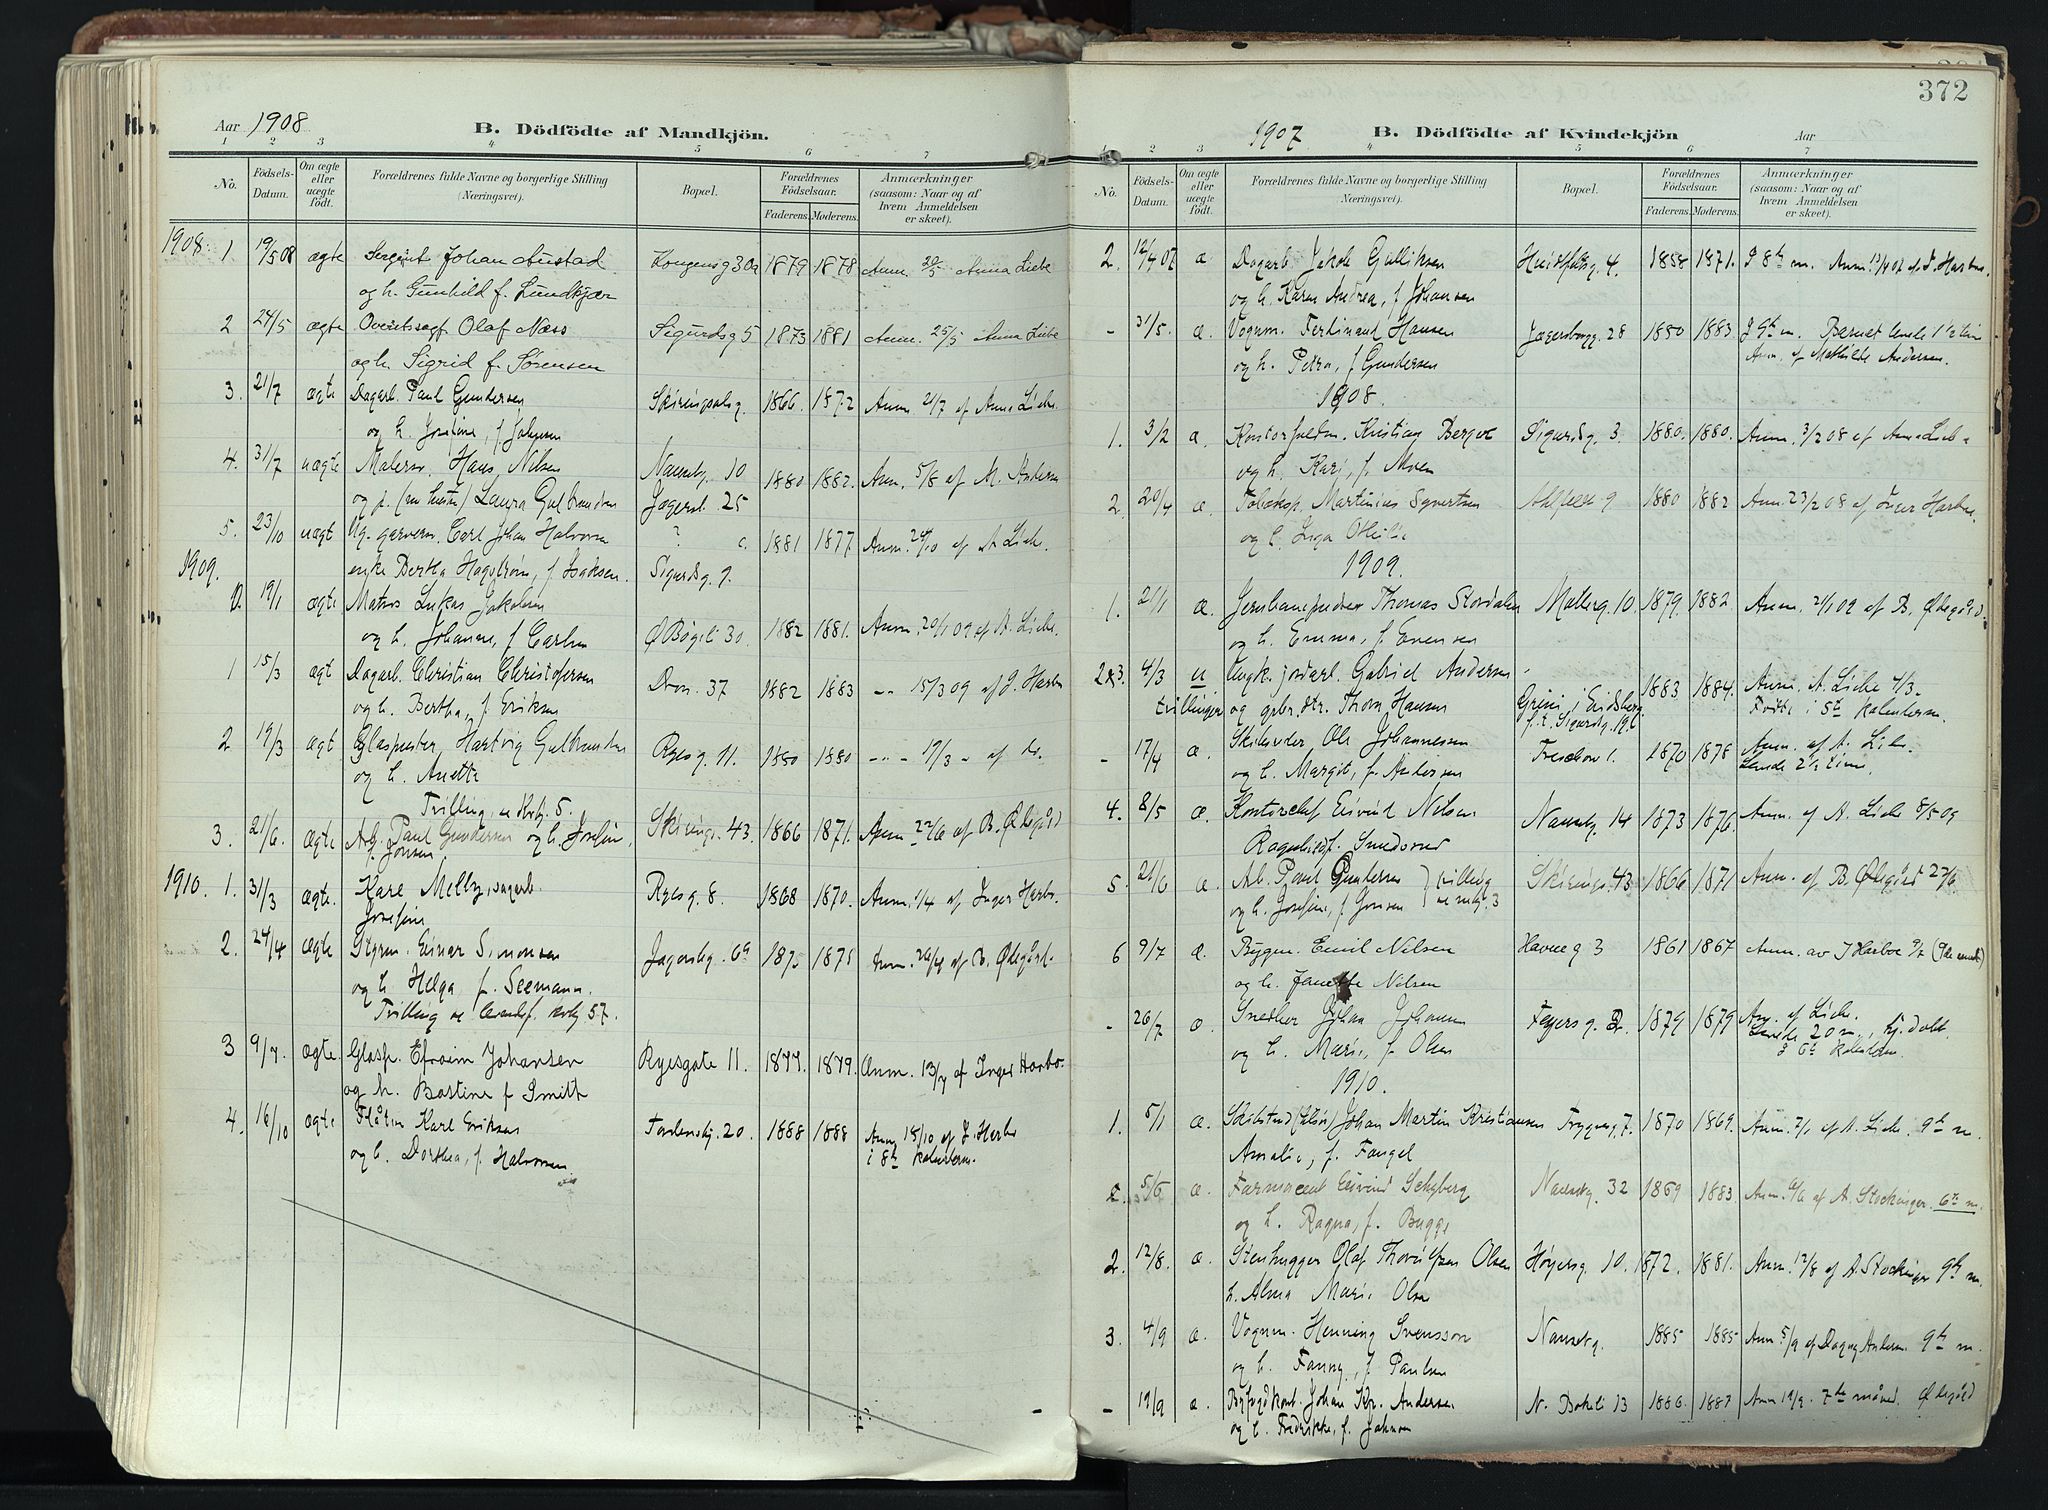 372
Aar 1908 B. Dödfödte af Mandkjön.
1 2 3 4 5 6 7
No. Födsels-Datum. Om ægte eller uægte födt. Forældrenes fulde Navne og borgerlige Stilling (Næringsvei). Bopæl. Forældrenes Födselsaar. Faderens. Moderens. Anmærkninger (saasom: Naar og af hvem Anmeldelsen er skeet).
1908. 1 19/5 08 ægte Sergeant Johan Austad Kongensg 30a 1879 1878 Anm. 20/5 Anna Lie
og h. Gunhild f. Lundkjær
2 24/5 ægte Overretssagf. Olaf Næss Sigurdsg 5 1873 1881 Anm. 25/5 Anna Lie
og h. Sigrid f. Sørensen
3. 21/7 ægte Dagarb. Paul Gundersen Skiringsalsg. 1866. 1872 Anm. 21/7 af Anna Lie
og h. Josefine, f. Johnsen
4. 31/7 uægte Malersv. Hans Nilsen Nansetg. 10 1880 1882. Anm. 5/8 af M. Andersen
og p. Laura Gulbrandsen Jægersb. 25
5. 23/10 uægt Ug. garverm. Carl Johan Halvorsen ? 1881 1877. Anm. 24/10 af A Lie.
enke Bertha Hagstrøm, f. Isaksen. Sigurdsg. 9.
1909.
19/1 ægte Matros Lukas Jakobsen Ø Bøgeli 30. 1882 1881. Anm. 20/1 09 af A. Lie.
og h. Johanne, f. Carlsen
1 15/3 ægt Dagarb. Christian Christofersen Dron. 37 1882 1883 - 15/3 09 af J. Harbo
og h. Bertha, f. Eriksen
2 19/3 ægt Glaspuster Hartvig Gulbrandsen Ryesg. 11. 1880 1880 - 19/3 - af ds.
og h. Anette
Tvilling, se Kvkj. 5.
3. 21/6. ægte Arb. Paul Gundersen og h. Josefine, Skirings. 43 1866 1871. Anm 22/6 af B. Ødegård
f. Jonsen
1910. 1. 31/3 ægte. Karl Melby, dagarb. Ryesg. 8. 1868 1870. Anm. 1/4 af Inger Harbo.
Josefine
2. 24/4 ægte Styrm. Einar Simonsen Jagersbg. 69 1875 1875 Anm. 26/4 af B. Ødegård.
og h. Helga f. Seemann.
Tvilling se levendef. kvkj 57.
3 9/7. ægte. Glasp. Efraim Johansen Ryesgate 11. 1877. 1879. Anm. 13/7 af Inger Harbo.
og h. Bastine f Smith
4. 16/10 ægte Karl Eriksen Tordenskj. 20. 1888 1888 Anm 18/10 af J. Harbo
og h. Dorthea, f. Halvorsen i 8de kalenderm.
1907 B. Dödfödte af Kvindekjön Aar
1 2 3 4 5 6 7
No. Födsels-Datum. Om ægte eller uægte födt. Forældrenes fulde Navne og borgerlige Stilling (Næringsvei). Bopæl. Forældrenes Födselsaar. Faderens. Moderens. Anmærkninger (saasom: Naar og af hvem Anmeldelsen er skeet).
2. 12/4 07 æ Dagarb. Jakob Gulliksen Hvidtfeldtsg. 4. 1858 1871. I 8de m. Anm. 13/4 07 af J. Harbo.
og h. Karen Andrea, f. Johansen
- 31/5. æ. Vognm. Ferdinand Hansen Jægersborgg. 28 1880 1883 I 9de m. Barnet levde 1 1/2 time
og h. Petra, f Gundersen Anm. af Mathilde Andersen.
1908.
1. 3/2 æ. Kontorfuldm. Kristian Berger Sigurdsg. 3. 1880. 1880. Anm. 3/2 08 af Anna Lie
og h. Kari, f. Moen
2. 20/4 æ. Martinius Syvertsen Ahlfeldt 9 1880 1882 Anm. 23/2 08 af Inger Harbo.
og h. Inga Otilie
1909.
1. 21/1 æ. Jernbanepudser Thomas Stordalen Møllerg. 10. 1879 1882 Anm. 21/1 09 af B. Ødegård.
og h. Emma, f. Evensen
2&3. 4/3 u Ungk. jordarb. Gabriel Andersen 1883 1884. Anm. A. Lie 4/3.
tvillinger og gbr.dtr. Thora Hansen Grini, Eidsberg Født i 5te kalenderm.
f.t. Sigurdsg. 19b
- 17/4 æ. Ole Johannessen Treschow 1. 1870 1878 Anm. af A. Lie.
og h. Margit, f. Andersen Levde 2 1/2 time.
4. 8/5 æ. Kontorchef Eivind Nilsen Nansetg. 14 1873 1876. Anm. af A. Lie 8/5 09
Ragnhild f. Smedsrud
5. 21/6 æ. Arb. Paul Gundersen } tvilling Skirings. 43 1866 1871 Anm. af B. Ødegård 22/6
og h. Josefine, f. Jonsen } se mkj. 3
6 9/7 æ. Bygm. Emil Nilsen Havneg 3 1861 1867 Anm. av J Harboe 9/7 (9de måned)
og h. Janette Nilsen
- 26/7 æ. Snedker Johan Johansen Feyersg. 2. 1879 1879 Anm. af Lie.
og h. Marie, f. Olsen Levde 20 m., hj.døbt
I 6te kalenderm.
1910.
1. 5/1 æ. Johan Martin Kristiansen Tryggvesg. 7. 1870 1869. Anm. 7/1 af A. Lie. 9de m.
Amalie, f. Fangel
5/6 æ. Farmaceut Eivind Schyberg Nansetg. 32 1869 1883 Anm. 6/6 af A. Stockinger. 6te m.
og h. Ragna, f. Bugge
2. 12/8. æ. Stenhugger Olaf Thorulfsen Olsen Høyersg. 10. 1872. 1881. Anm. 12/8 af A. Stockinger 9de m.
h. Alma Marie Olsen
3. 4/9 æ. Vognm. Henning Svensson Nansetg. 1885 1885 Anm 5/9 af Dagny Andersen 9de m.
og h. Fanny, f. Paulsen
- 19/9 æ. Byfogdkont. Johan Kr. Andersen N. Bøkeli 13 1886. 1887 Anm 19/9. 7de måned. Ødegård
og h. Fredrikke, f. Johnsen